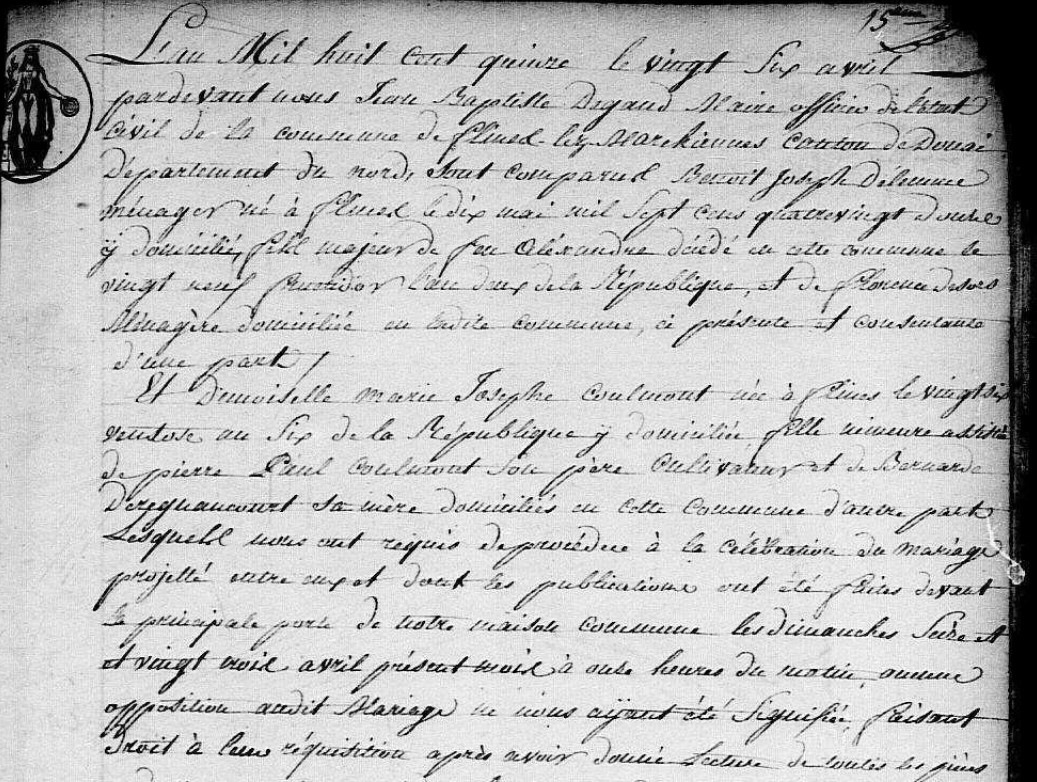 15eme
L'an Mil huit cent quinze le vingt Six avril
pardevant nous Jean Baptiste Degand Maire officier de l'état
Civil de la commune de flines-lez-Marchiennes Canton de Douai
Département du nord, sont comparus Benoit Joseph Delemme
ménager né à flines le dix mai mil sept cens quatrevingt douze
y domicilié, fils majeur de feu Aléxandre décédé en cette commune le
vingt neuf fructidor l'an deux de la République, et de florence desors
Ménagère domiciliée en ladite commune, ci présente et consentante
d'une part /
Et Demoiselle Marie Josephe Coulmont née à flines le vingt six
ventose an Six de la République y domiciliée fille mineure assistée
de pierre Paul Coulmont son père Cultivateur et de Bernarde
Deregnaucourt sa mère domiciliés en cette Commune d'autre part
Lesquels nous ont requis de procéder à la célébration du mariage
projetté entre eux et dont les publications ont été faites devant
la principale porte de notre maison commune les dimanches Seize et
et vingt trois avril présent mois à onze heures du matin, aucune
opposition audit Mariage ne nous ayant été Signifiée, faisant
droit à leur réquisition après avoir donné Lecture de toutes les pièces